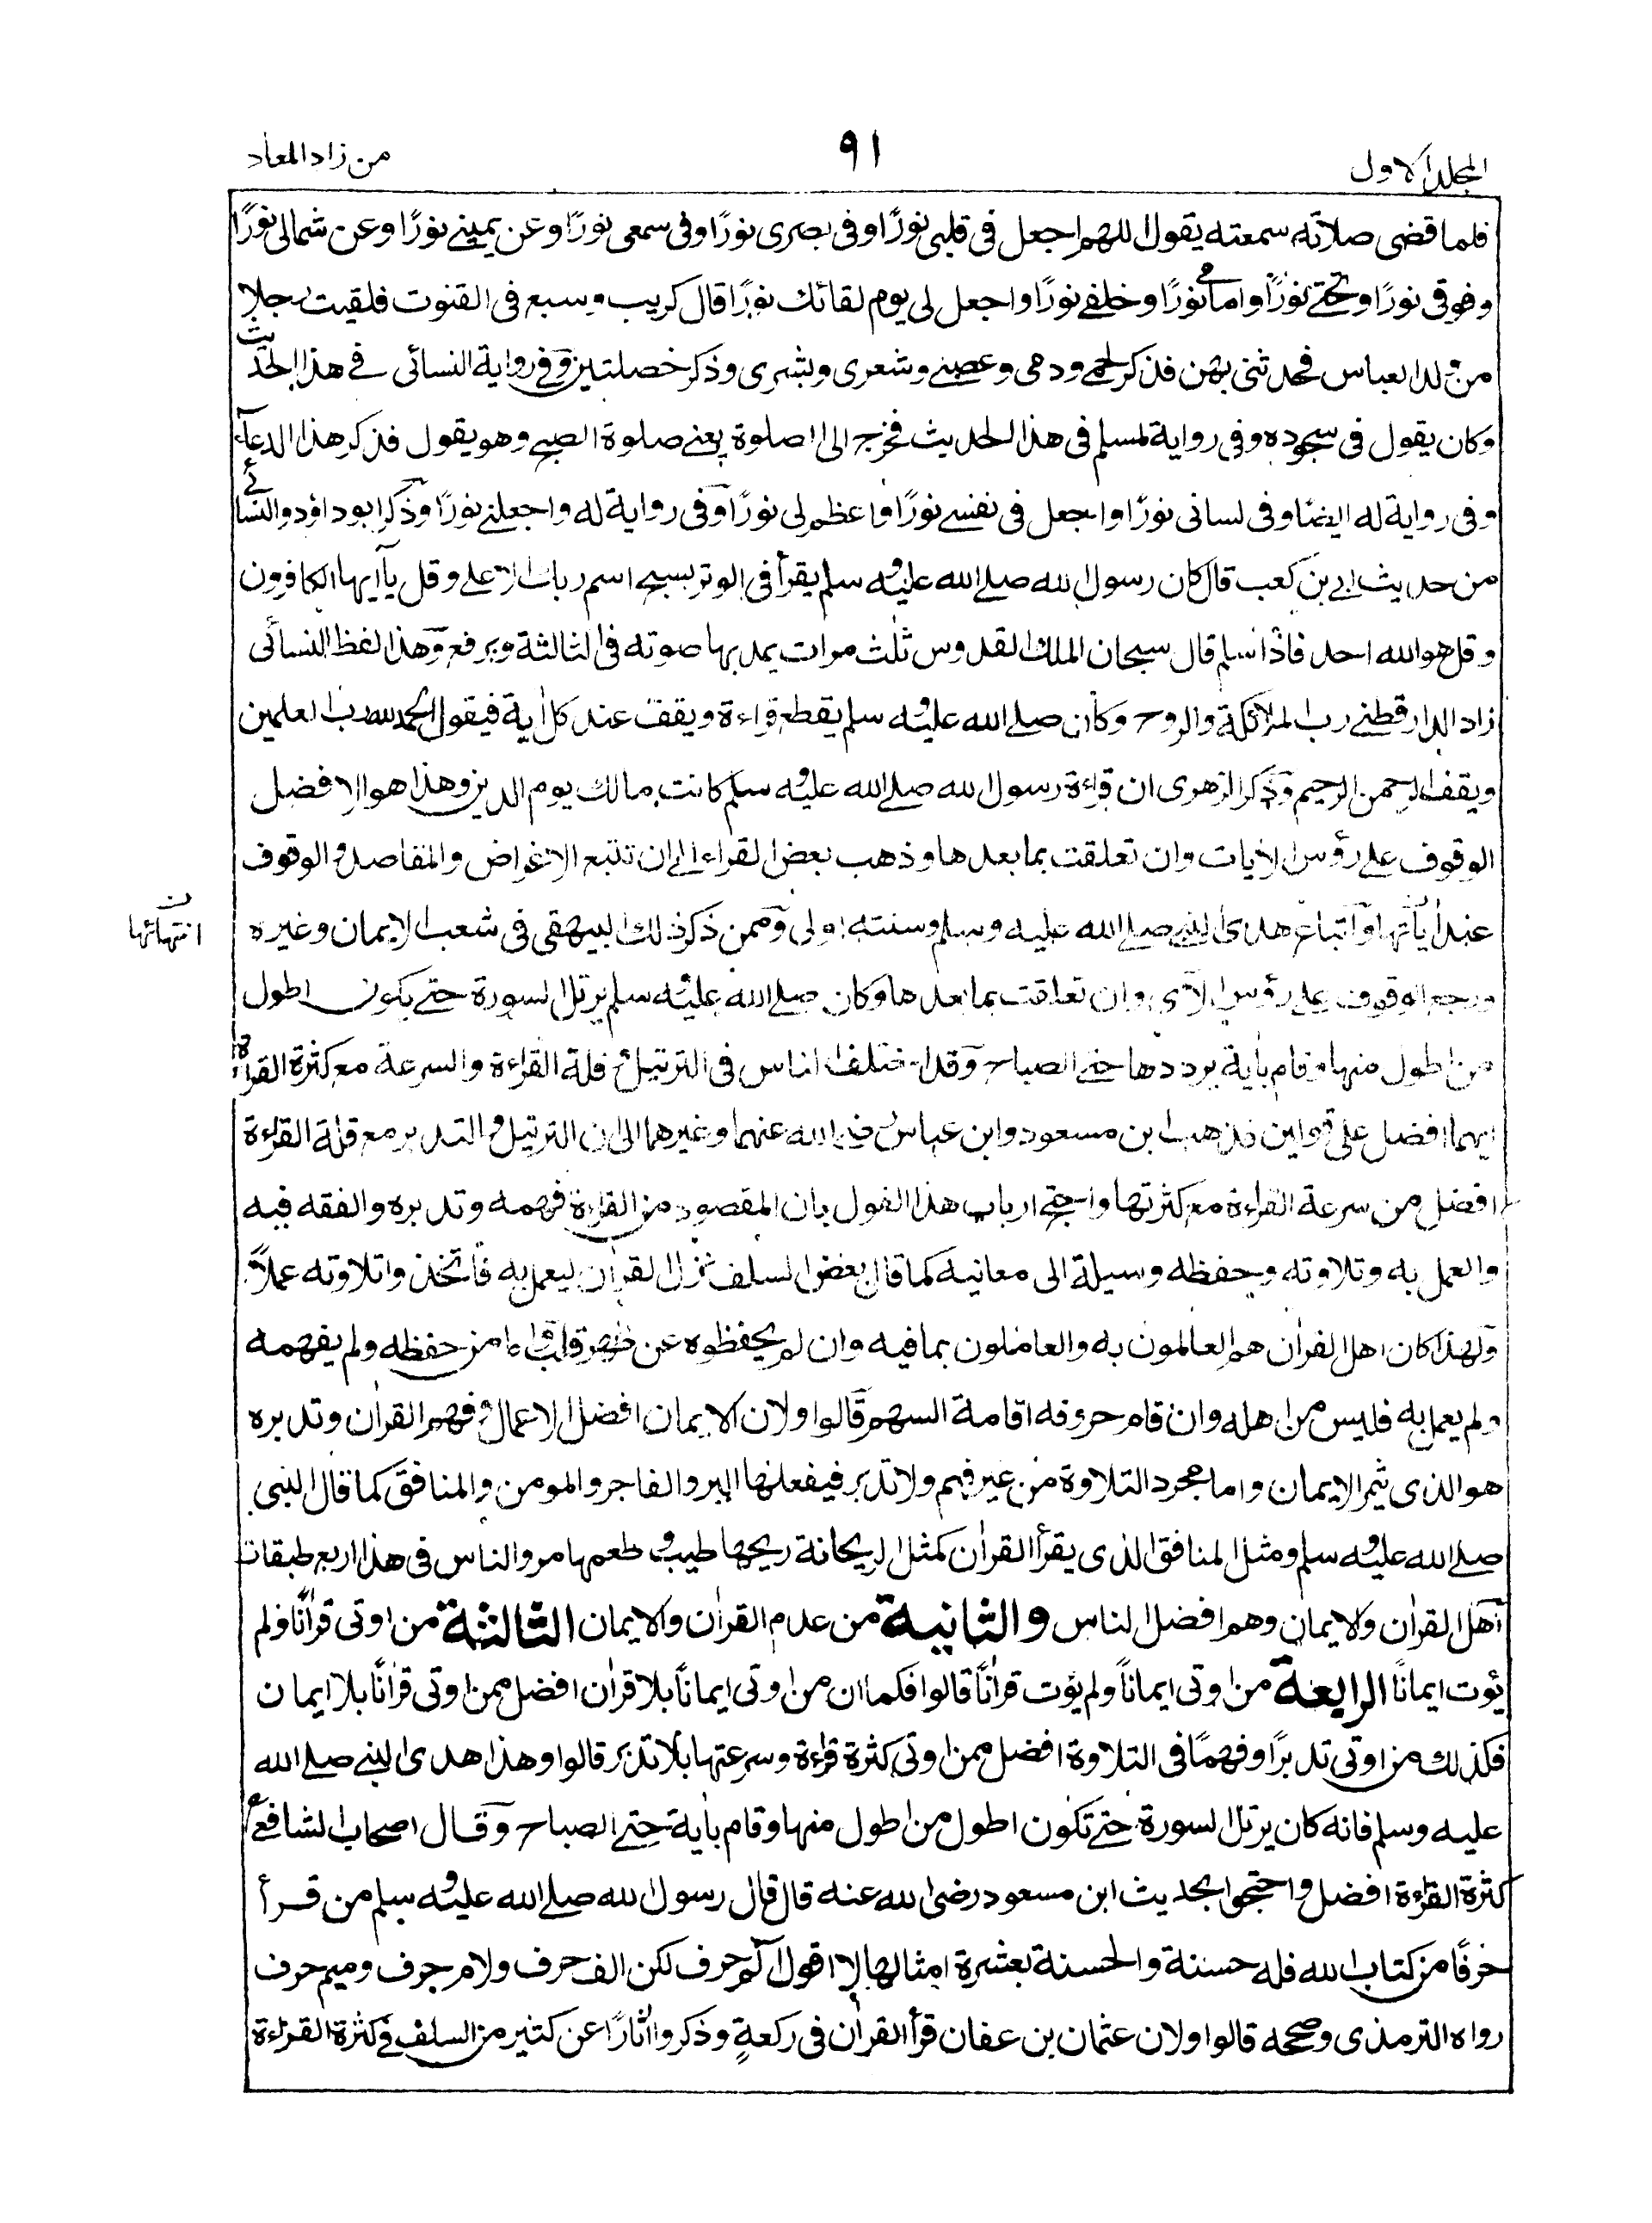 المجلد الاول
٩١
من زاد المعاد
فلما قضى صلاته سمعته يقول اللهم اجعل فى قلبى نورًا وفى بصرى نورًا وفى سمعى نورًا وعن يمينے نورًا وعن شمالى نورًا
وفوقى نورًا وتحتے نورًا وامامى نورًا وخلفے نورًا واجعل لى يوم لقائك نورًا قال كريب وسبع فى القنوت فلقيت رجلا
من ولد العباس فحدثنى بهن فذكر لحمے ودمى وعصبے وشعرى وبشرى وذكر خصلتين وفے رواية النسائى فے هذا الحديث
وكان يقول فى سجوده وفى رواية لمسلم فى هذا الحديث فخرج الى الصلوة يعنے صلوة الصبح وهو يقول فذكر هذا الدعاء
وفى رواية له ايضًا وفى لسانى نورًا واجعل فى نفسے نورًا واعظم لى نورًا وفى رواية له واجعلنے نورًا وذكر ابو داؤد والنسائے
من حديث ابے بن كعب قال كان رسول الله صلے الله عليه وسلم يقرأ فى الوتر بسبح اسم ربك الاعلے وقل يآ ايها الكافرون
وقل هو الله احد فاذا سلم قال سبحان الملك القدوس ثلث مرات يمد بها صوته فى الثالثة ويرفع وهذا لفظ النسائى
زاد الدارقطنے رب الملائكة والروح وكان صلے الله عليه وسلم يقطع قراءة ويقف عند كل اٰية فيقول الحمد لله رب العلمين
ويقف الرحمن الرحيم وذكر الزهرى ان قراءة رسول الله صلے الله عليه وسلم كانت مالك يوم الدين وهذا هو الافضل
الوقوف علے رؤس الاٰيات وان تعلقت بما بعدها وذهب بعض القراء الے ان تتبع الاغراض والمقاصد والوقوف
عند اٰياتها واتباع هدى النبے صلے الله عليه وسلم وسنته اولى وممن ذكر ذلك البيهقى فى شعب الايمان وغيره
انتهائها
ورجح الوقوف علے رؤس الاٰى وان تعلقت بما بعدها وكان صلے الله عليه وسلم يرتل السورة حتے يكون اطول
من اطول منها وقام باٰية يرددها حتے الصباح وقد اختلف الناس فى الترتيل وقلة القراءة والسرعة مع كثرة القراءة
ايهما افضل على قولين فذهب ابن مسعود وابن عباس رضى الله عنهما وغيرهما الى ان الترتيل والتدبر مع قلة القراءة
افضل من سرعة القراءة مع كثرتها واحتج ارباب هذا القول بان المقصود من القراءة فهمه وتدبره والفقه فيه
والعمل به وتلاوته وحفظه وسيلة الى معانيه كما قال بعض السلف نزل القراٰن ليعمل به فاتخذوا تلاوته عملاً
ولهذا كان اهل القراٰن هم العالمون به والعاملون بما فيه وان لم يحفظوه عن ظهر قلب واما من حفظه ولم يفهمه
ولم يعمل به فليس من اهله وان قام حروفه اقامة السهم قالوا ولان الايمان افضل الاعمال وفهم القراٰن وتدبره
هو الذى يثمر الايمان واما مجرد التلاوة من غير فهم ولا تدبر فيفعلها البر والفاجر والمومن والمنافق كما قال النبى
صلے الله عليه وسلم ومثل المنافق الذى يقرأ القراٰن كمثل الريحانة ريحها طيب وطعمها مر والناس فى هذا اربع طبقات
اهل القراٰن والايمان وهم افضل الناس والثانية من عدم القراٰن والايمان الثالثة من اوتى قراٰنًا ولم
يؤت ايمانًا الرابعة من اوتى ايماناً ولم يؤت قراٰناً قالوا فكما ان من اوتى ايماناً بلا قراٰن افضل ممن اوتى قراٰناً بلا ايمان
فكذلك من اوتى تدبرًا وفهمًا فى التلاوة افضل ممن اوتى كثرة قراءة وسرعتها بلا تدبر قالوا وهذا هدى النبے صلے الله
عليه وسلم فانه كان يرتل السورة حتے تكون اطول من اطول منها وقام باٰية حتے الصباح وقال اصحاب الشافعے
كثرة القراءة افضل واحتجوا بحديث ابن مسعود رضى الله عنه قال قال رسول الله صلے الله عليه وسلم من قرأ
حرفًا من كتاب الله فله حسنة والحسنة بعشرة امثالها لا اقول الٓم حرف لكن الف حرف ولام حرف وميم حرف
رواه الترمذى وصححه قالوا ولان عثمان بن عفان قرأ القراٰن فى ركعةٍ وذكروا اٰثارًا عن كثير من السلف فے كثرة القراءة